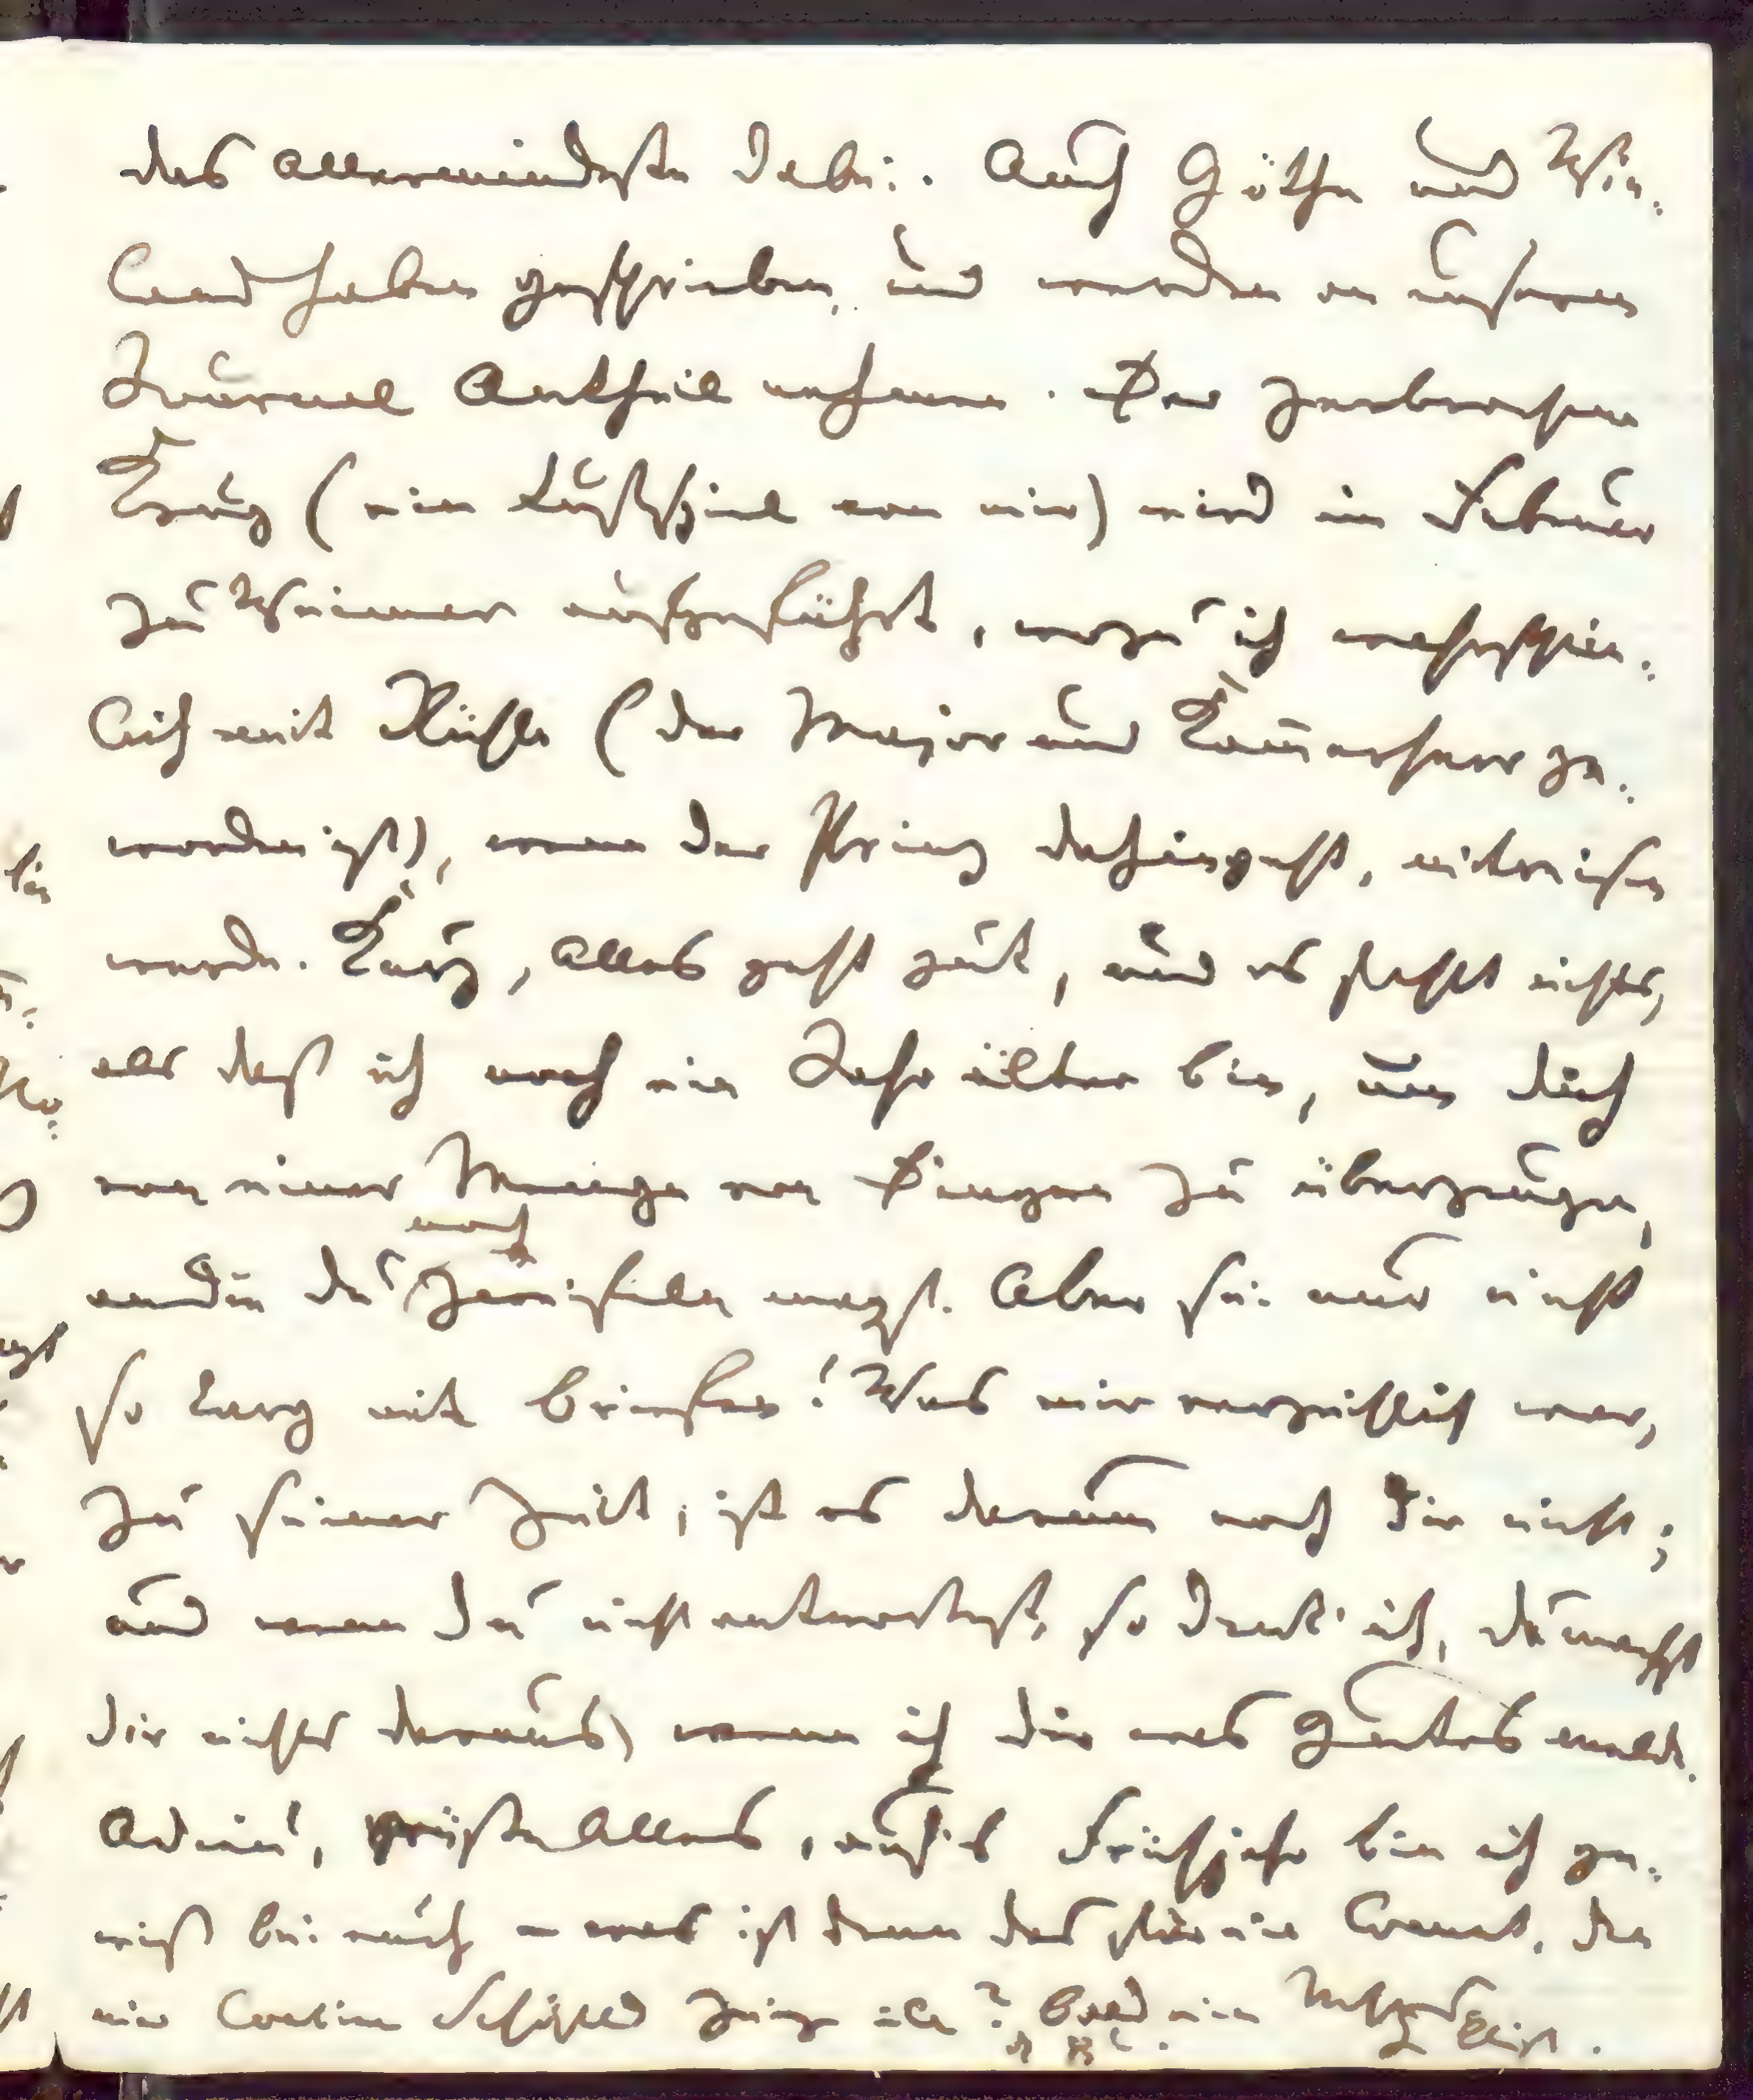 das allermindeste dabei. Auch Göthe und Wie:
land haben geschrieben, und werden an unserem
Journal Antheil nehmen. Der zerbrochene
Krug (ein Lustspiel von mir) wird im Februar
zu Weimar aufgeführt, wozu ich wahrschein:
lich mit Rühle (der Major und Kam̄erherr ge:
worden ist), wenn der Prinz dahingeht, mitreisen
werde. Kurz, Alles geht gut, und es fehlt nichts,
als daß ich noch ein Jahr älter bin, um dich
von einer Menge von Dingen zu überzeugen,
noch
an die du zweifeln magst. Aber sei nur nicht
so karg mit Briefen! Was mir verzeihlich war,
zu seiner Zeit, ist es darum noch Dir nicht;
und wenn Du nicht antwortest, so denk' ich, du machst
dir nichts daraus, wenn ich dir was Gutes melde.
Adieu, grüße Alles, auf's Frühjahr bin ich ge:
wiß bei euch – was ist denn das für ein den
mir ? Bald ein